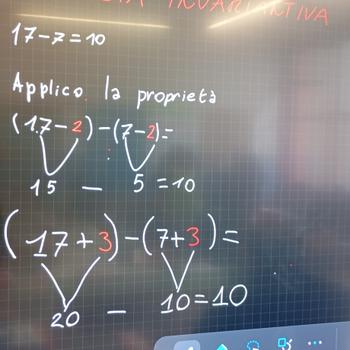 INVARIANTIVA
17-7=10
Applico la proprietà
(17-2)-(7-2)=
15 - 5 = 10
(17+3)-(7+3)=
20 - 10=10